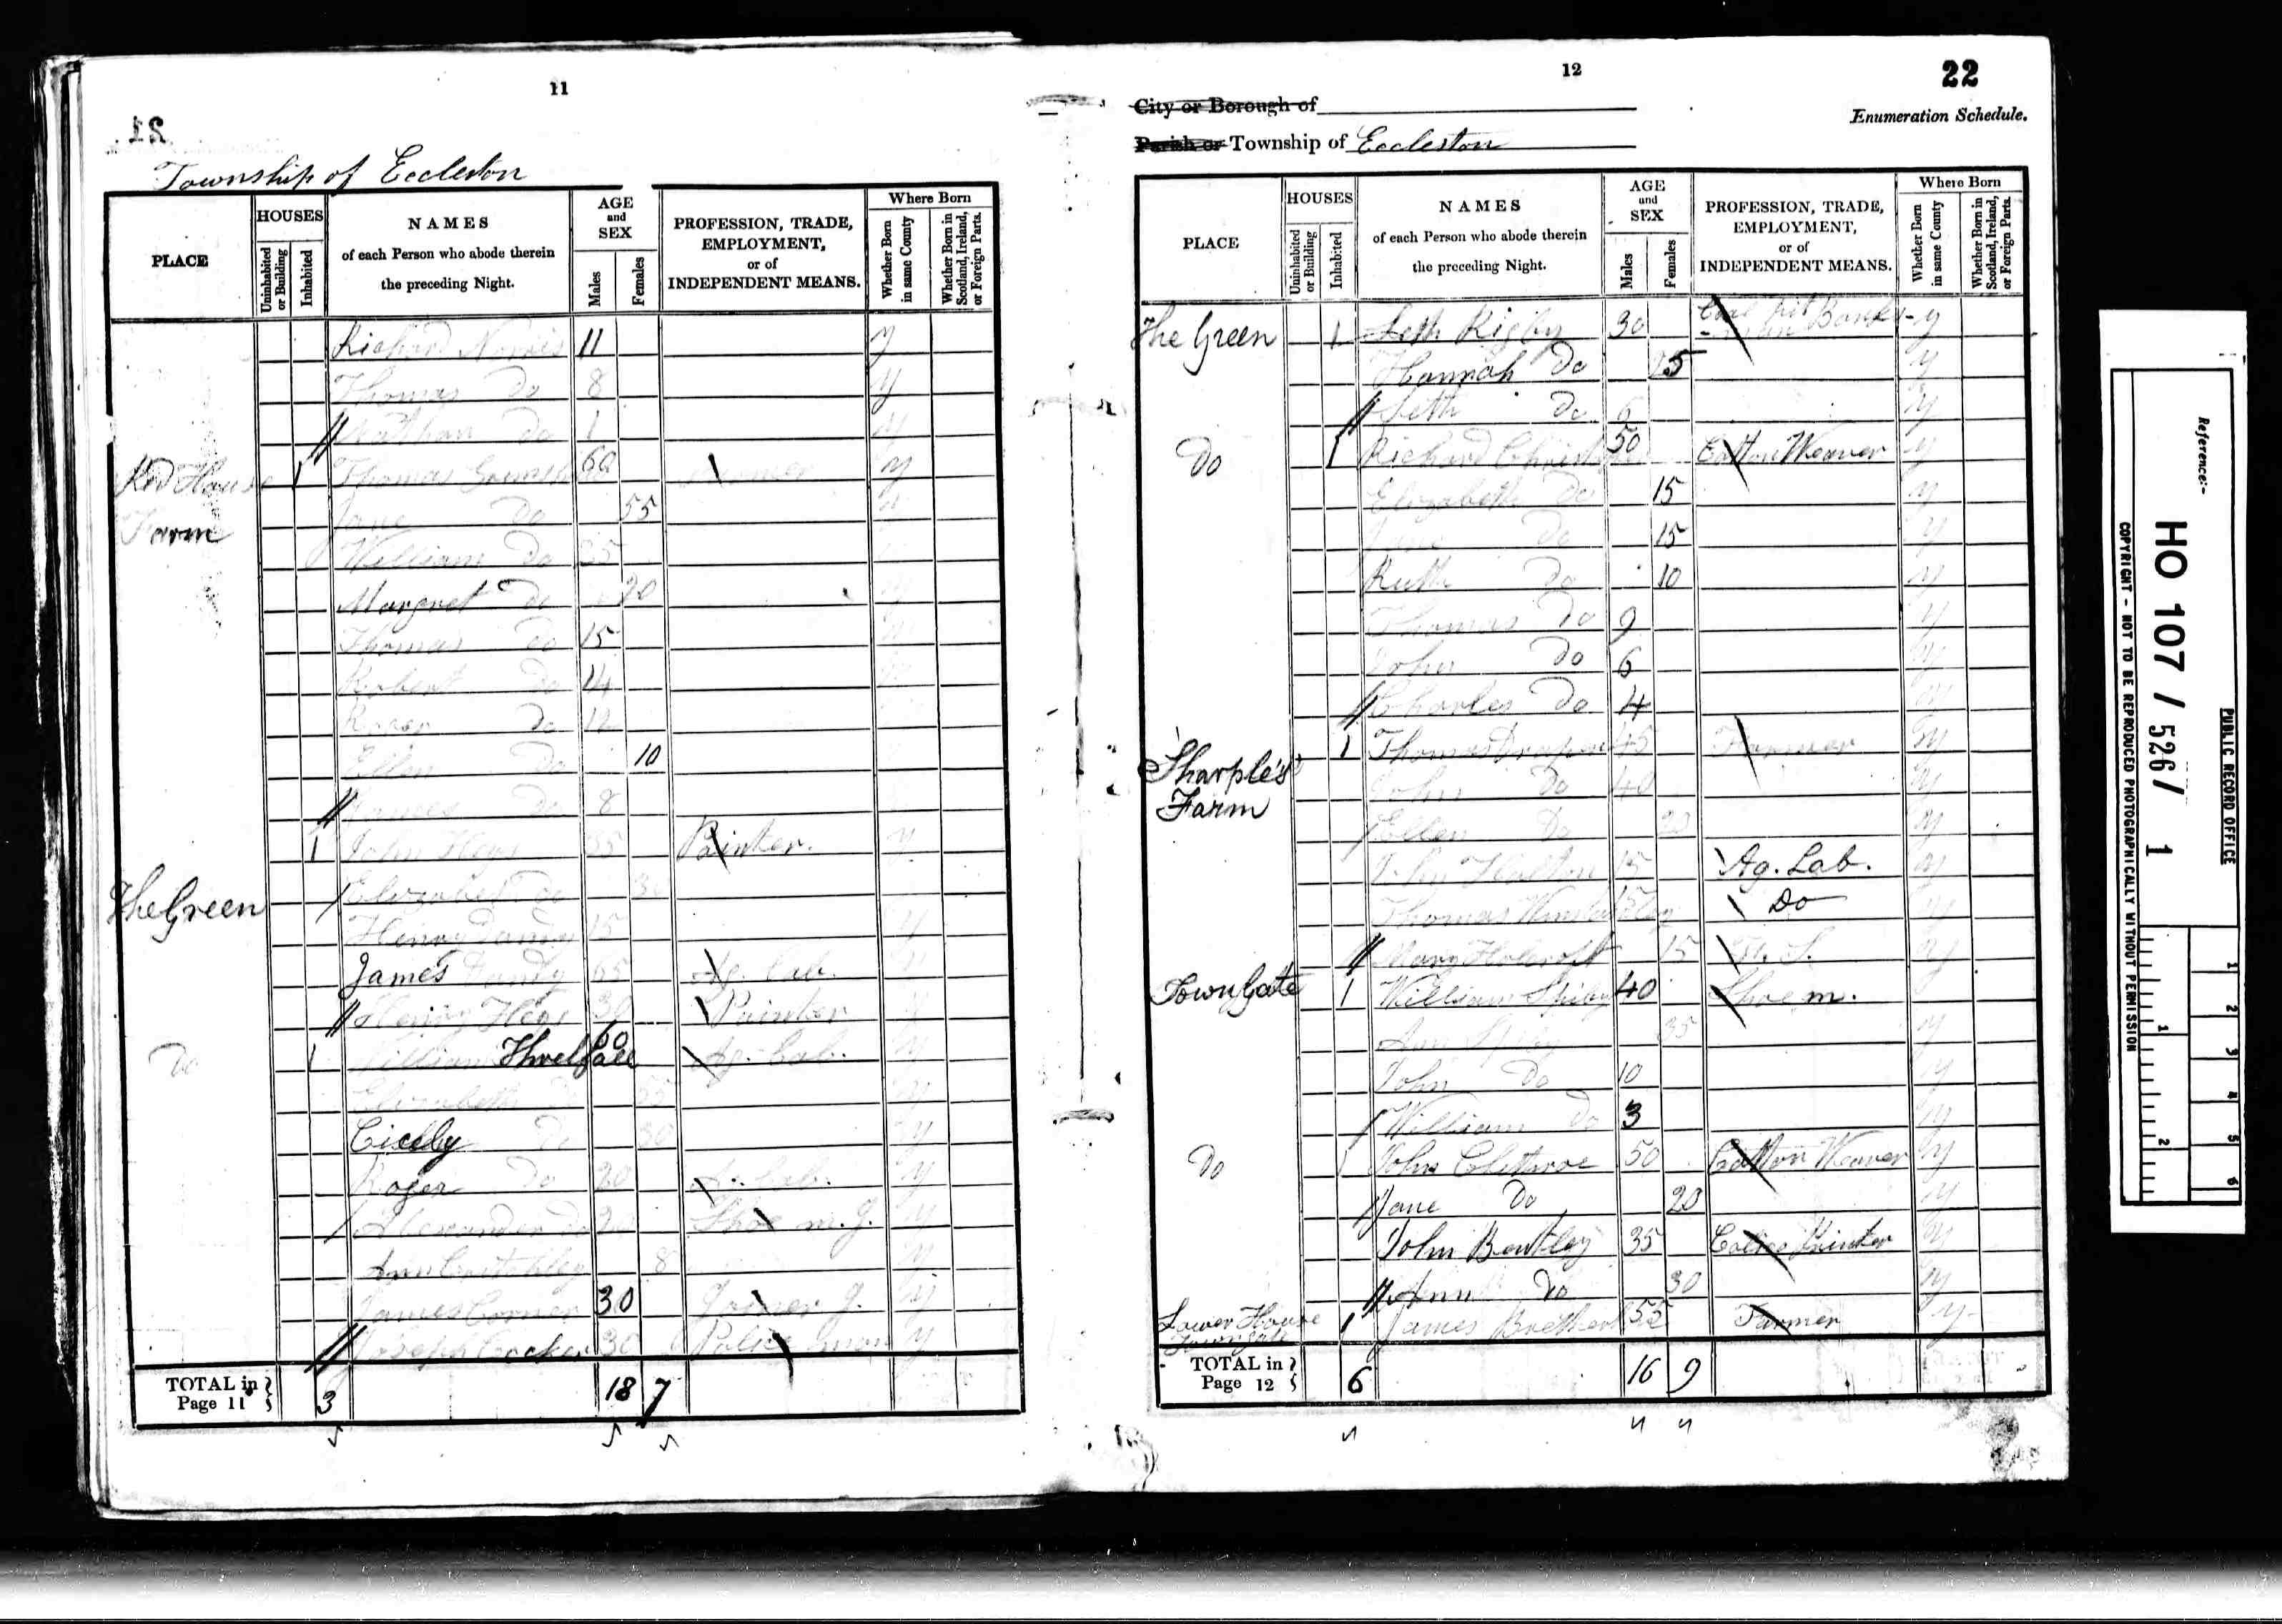 11
21
Township of Eccleston
PLACE
HOUSES
Uninhabited or Building
Inhabited
NAMES
of each Person who abode therein
the preceding Night.
AGE
and
SEX
Males
Females
PROFESSION, TRADE,
EMPLOYMENT,
or of
INDEPENDENT MEANS.
Where Born
Whether Born in same County
Whether Born in Scotland, Ireland, or Foreign Parts.
Richard Norris 11 y
Thomas Do 8 y
Nathan Do 1 y
Red House 1 Thomas 60 Farmer y
Farm Jane Do 55 y
William Do 25
Margret Do 20
Thomas Do 15
Robert Do 14
Roger Do 12
Ellen Do 10
James Do 8
1 John Heys 35 Painter. y
The Green Elizabeth Do 30
Henry 15 y
James Dandy 65 Ag. Lab. y
Henry Heys 30 Painter y
Do 1 William Threlfall 60 Ag. Lab. y
Elizabeth Do 55 y
Cicely Do 30 y
Roger Do 20 Ag. Lab. y
Alexander Do 20 Shoe m. J. y
Ann Critchley 8 y
James Corner 30 Joiner J. y
Joseph Cocker 30 Police man y
TOTAL in Page 11 3 18 7
12
22
City or Borough of
Enumeration Schedule.
Parish or Township of Eccleston
PLACE
HOUSES
Uninhabited or Building
Inhabited
NAMES
of each Person who abode therein
the preceding Night.
AGE
and
SEX
Males
Females
PROFESSION, TRADE,
EMPLOYMENT,
or of
INDEPENDENT MEANS.
Where Born
Whether Born in same County
Whether Born in Scotland, Ireland, or Foreign Parts.
The Green 1 Seth Rigby 30 Coal pit Banks- y
Hannah Do 25 y
Seth Do 6 y
Do 1 Richard 50 Cotton Weaver y
Elizabeth Do 15 y
Jane Do 15 y
Ruth Do 10 y
Thomas Do 9 y
John Do 6 y
Charles Do 4 y
Sharple's 1 Thomas Draper 45 Farmer y
Farm John Do 40 y
Ellen Do 20 y
John Halton 15 Ag. Lab. y
Thomas 15 Do y
Mary Holcroft 15 F. S. y
Town Gate 1 William Spiby 40 Shoe m. y
Ann Spiby 35 y
John Do 10 y
William Do 3 y
Do 1 John 50 Cotton Weaver y
Jane Do 20 y
John Bentley 35 Calico Printer y
Ann Do 30 y
Lower House 1 James 55 Farmer y
Towngate
TOTAL in Page 12 6 16 9
Reference:-
HO 107 / 526 / 1
PUBLIC RECORD OFFICE
COPYRIGHT - NOT TO BE REPRODUCED PHOTOGRAPHICALLY WITHOUT PERMISSION
1 2 3 4 5 6
1 2